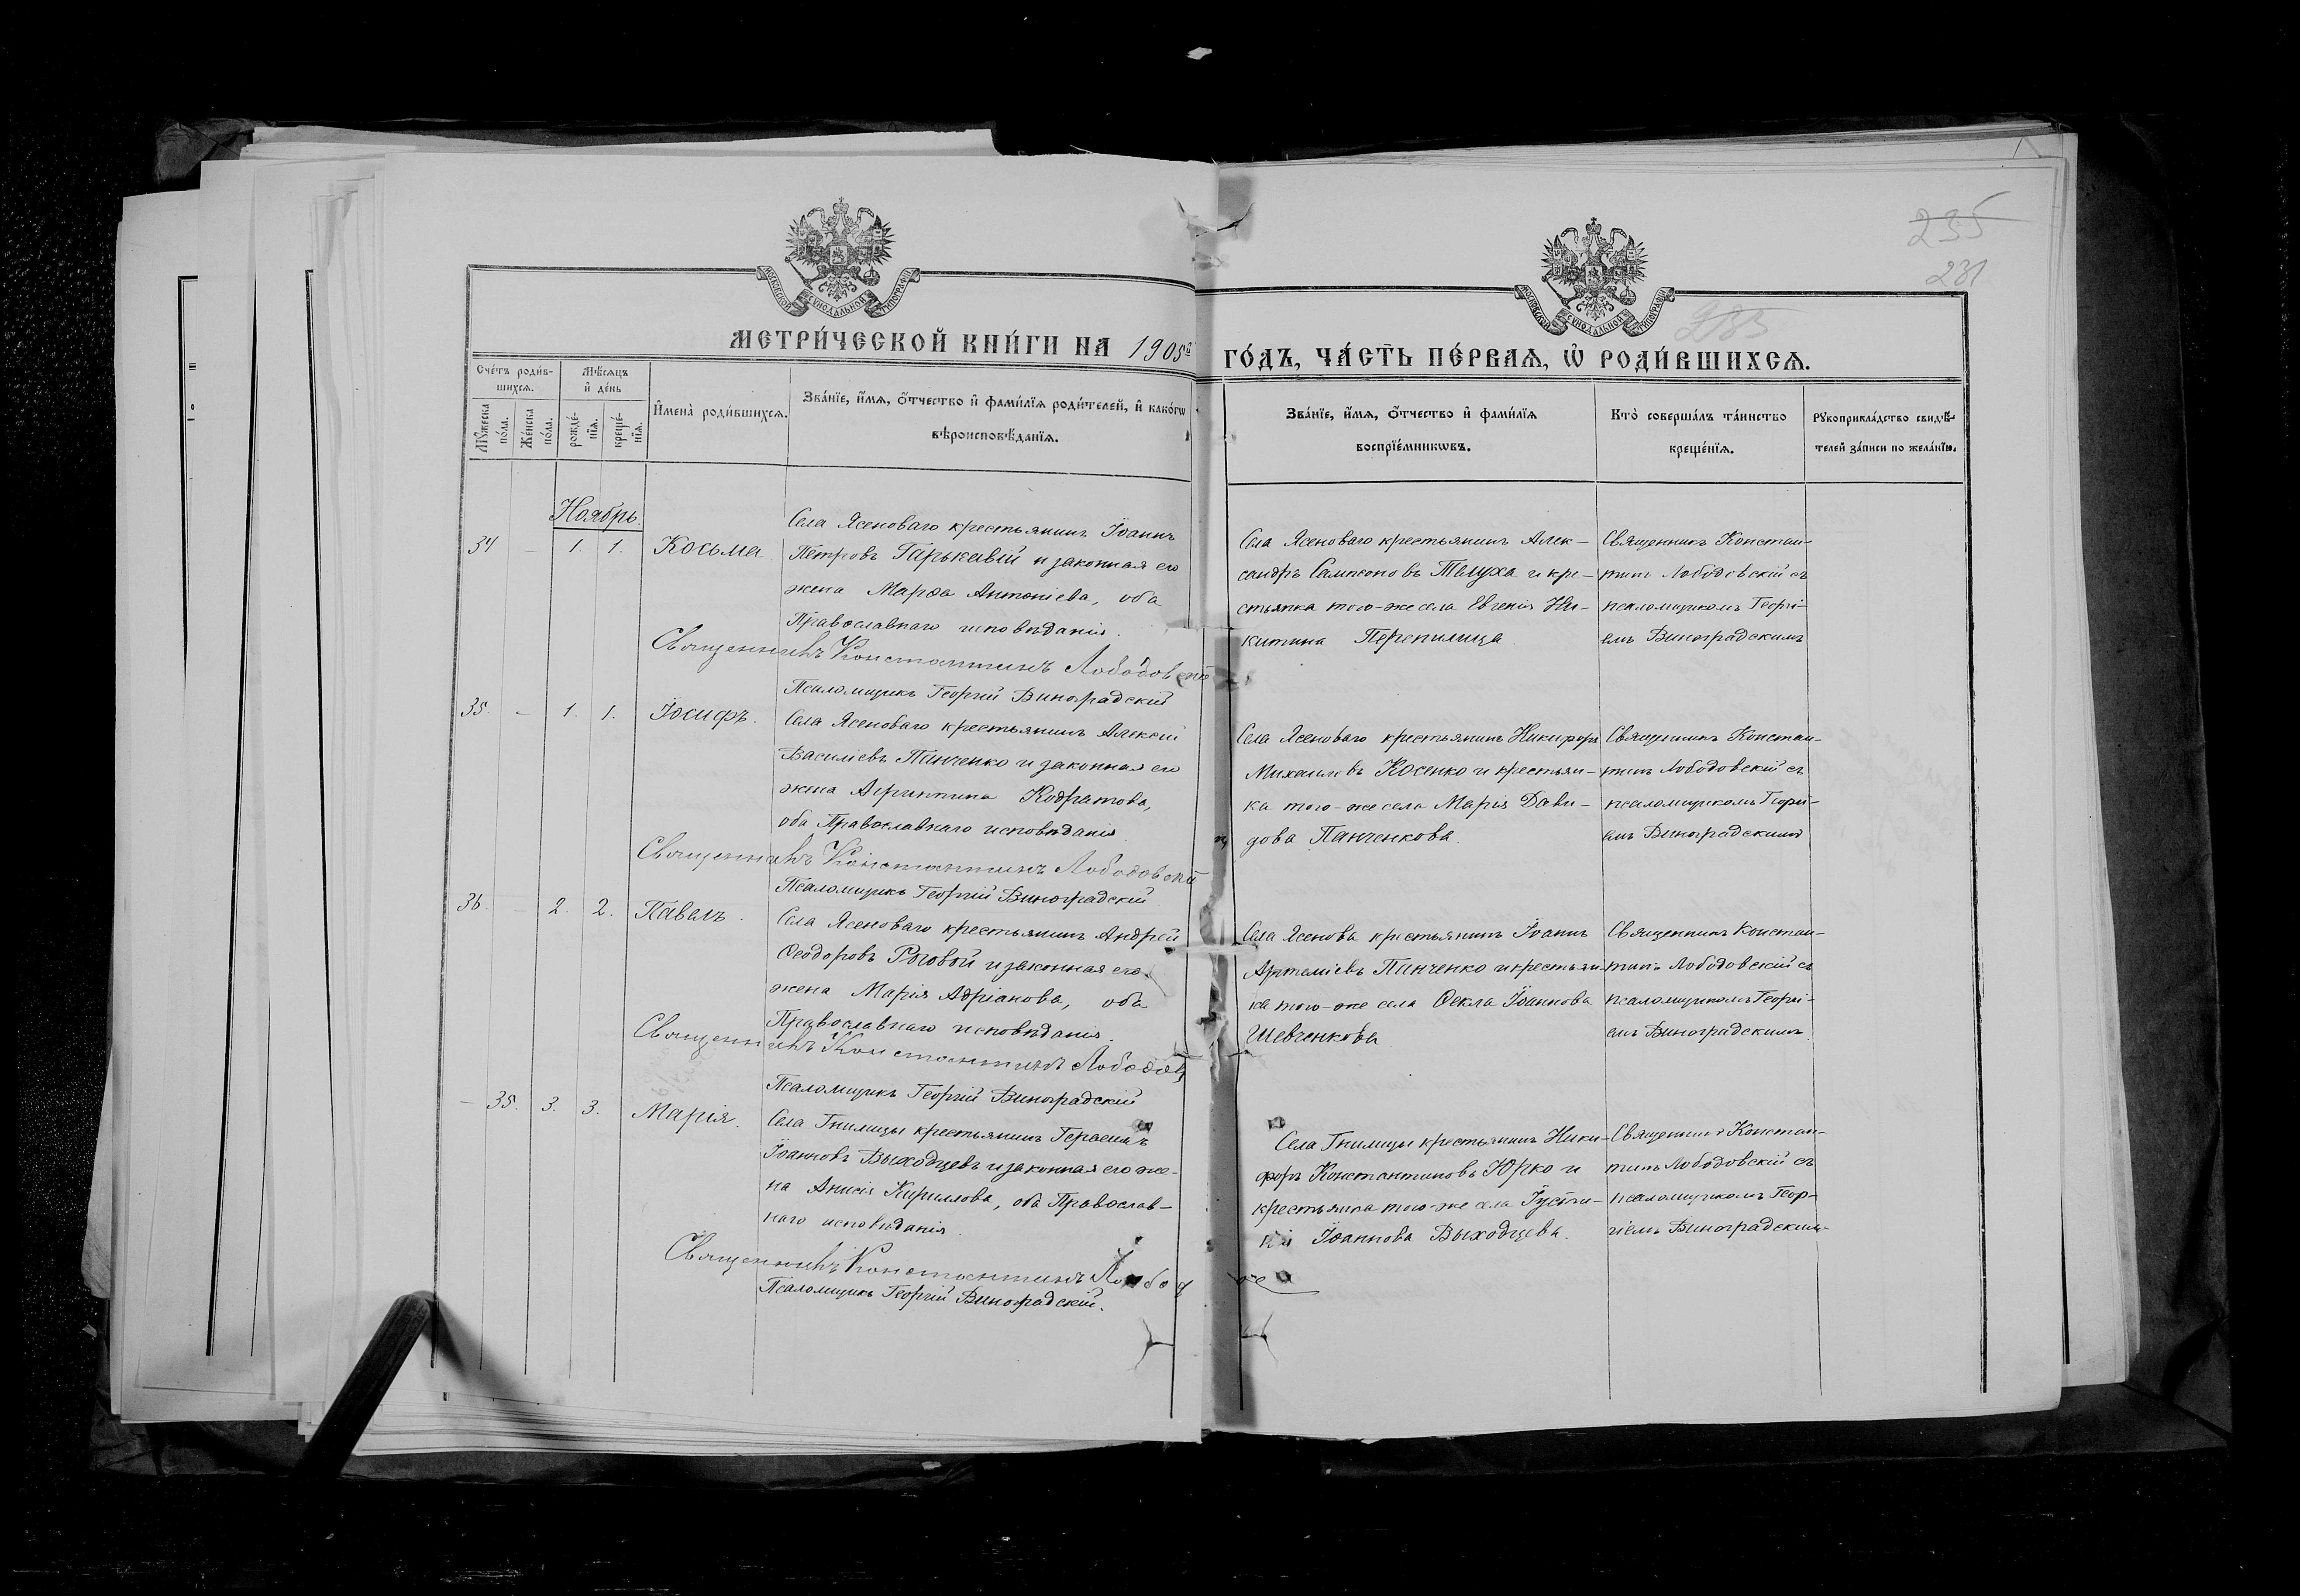 235
231
МОСКОВСКОЙ СѴНОДАЛЬНОЙ ТИПОГРАФІИ
МОСКОВСКОЙ СѴНОДАЛЬНОЙ ТИПОГРАФІИ
МЕТРИ́ЧЕСКОЙ КНИ́ГИ НА 1905й
ГО́ДЪ, ЧА́СТЬ ПЕ́РВАЯ, Ѿ РОДИ́ВШИХСЯ.
Сче́тъ роди́в-
шихся.
Мѣ́сяцъ
и҆ де́нь
Му́жеска
по́ла.
Же́нска
по́ла.
рожде́-
нїя.
креще́-
нїя.
И҆мена̀ роди́вшихся.
Зва́нїе, и҆́мя, ѻ҆́тчество и҆ фами́лїя роди́телей, и҆ како́гѡ
вѣроисповѣ́данїя.
Зва́нїе, и҆́мя, ѻ҆́тчество и҆ фами́лїя
воспрїе́мникѡвъ.
Кто̀ соверша́лъ та́инство
креще́нїя.
Рꙋкоприкла́дство свидѣ́-
телей за́писи по жела́нїю.
Ноябрь.
34 – 1. 1. Косьма
Села Ясеноваго крестьянинъ Іоаннъ
Петровъ Гарькавій и законная его
жена Марѳа Антоніева, оба
Православнаго исповѣданія.
Священникъ Константинъ Лободовскій
Псаломщикъ Георгій Виноградскій
Села Ясеноваго крестьянинъ Алек-
сандръ Сампсоновъ Телуха и кре-
стьянка того-же села Евгенія Ни-
китина Перепилица
Священникъ Констан-
тинъ Лободовскій съ
псаломщикомъ Георгі-
емъ Виноградскимъ
35. – 1. 1. Іосифъ.
Села Ясеноваго крестьянинъ Алексій
Василіевъ Панченко и законная его
жена Агриппина Кодратова,
оба Православнаго исповѣданія
Священникъ Константинъ Лободовскій
Псаломщикъ Георгій Виноградскій
Села Ясеноваго крестьянинъ Никифоръ
Михаиловъ Косенко и крестьян-
ка того-же села Марія Дави-
дова Панченкова.
Священникъ Констан-
тинъ Лободовскій съ
псаломщикомъ Георгі-
емъ Виноградскимъ
36. – 2. 2. Павелъ.
Села Ясеноваго крестьянинъ Андрей
Ѳеодоровъ Роговой и законная его
жена Марія Адріанова, оба
Православнаго исповѣданія.
Священникъ Константинъ Лободов
Псаломщикъ Георгій Виноградскій
Села Ясенова крестьянинъ Іоаннъ
Артеміевъ Панченко и крестьян-
ка того-же села Ѳекла Іоаннова
Шевченкова
Священникъ Констан-
тинъ Лободовскій съ
псаломщикомъ Георгі-
емъ Виноградскимъ.
– 35. 3. 3. Марія.
Села Гнилицы крестьянинъ Герасимъ
Іоанновъ Выходцевъ и законная его же-
на Анисія Кириллова, оба Православ-
наго исповѣданія.
Священникъ Константинъ Лобод
Псаломщикъ Георгій Виноградскій.
Села Гнилицы крестьянинъ Ники-
форъ Константиновъ Юрко и
крестьянка того-же села Іусти-
Іоаннова Выходцева.
Священникъ Констан-
тинъ Лободовскій съ
псаломщикомъ Геор-
гіемъ Виноградскимъ